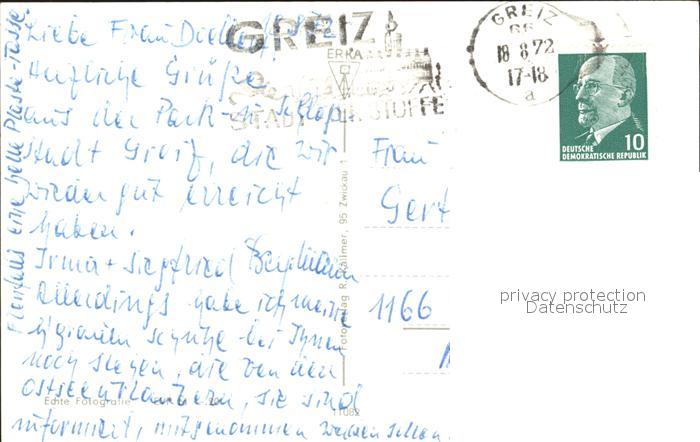 Liebe Frau
GREIZ
ERKA
STADT
STOFFE
GREIZ
18 8.72
17-18
a
10
DEUTSCHE
DEMOKRATISCHE REPUBLIK
Herzliche Grüße
aus der Park- u. Schloß
stadt Greiz, die wir
wieder gut erreicht
haben.
Irma + Siegfried
Allerdings habe ich meine
bei Ihnen
noch stehen, die von den
Ostseeurlaubern, sie sind
informiert, mitgenommen werden sollen.
eine helle Plaste-Tasse.
Frau
Gert
1166
Fotoverlag R. Kallmer, 95 Zwickau 1
Echte Fotografie
11082
privacy protection
Datenschutz